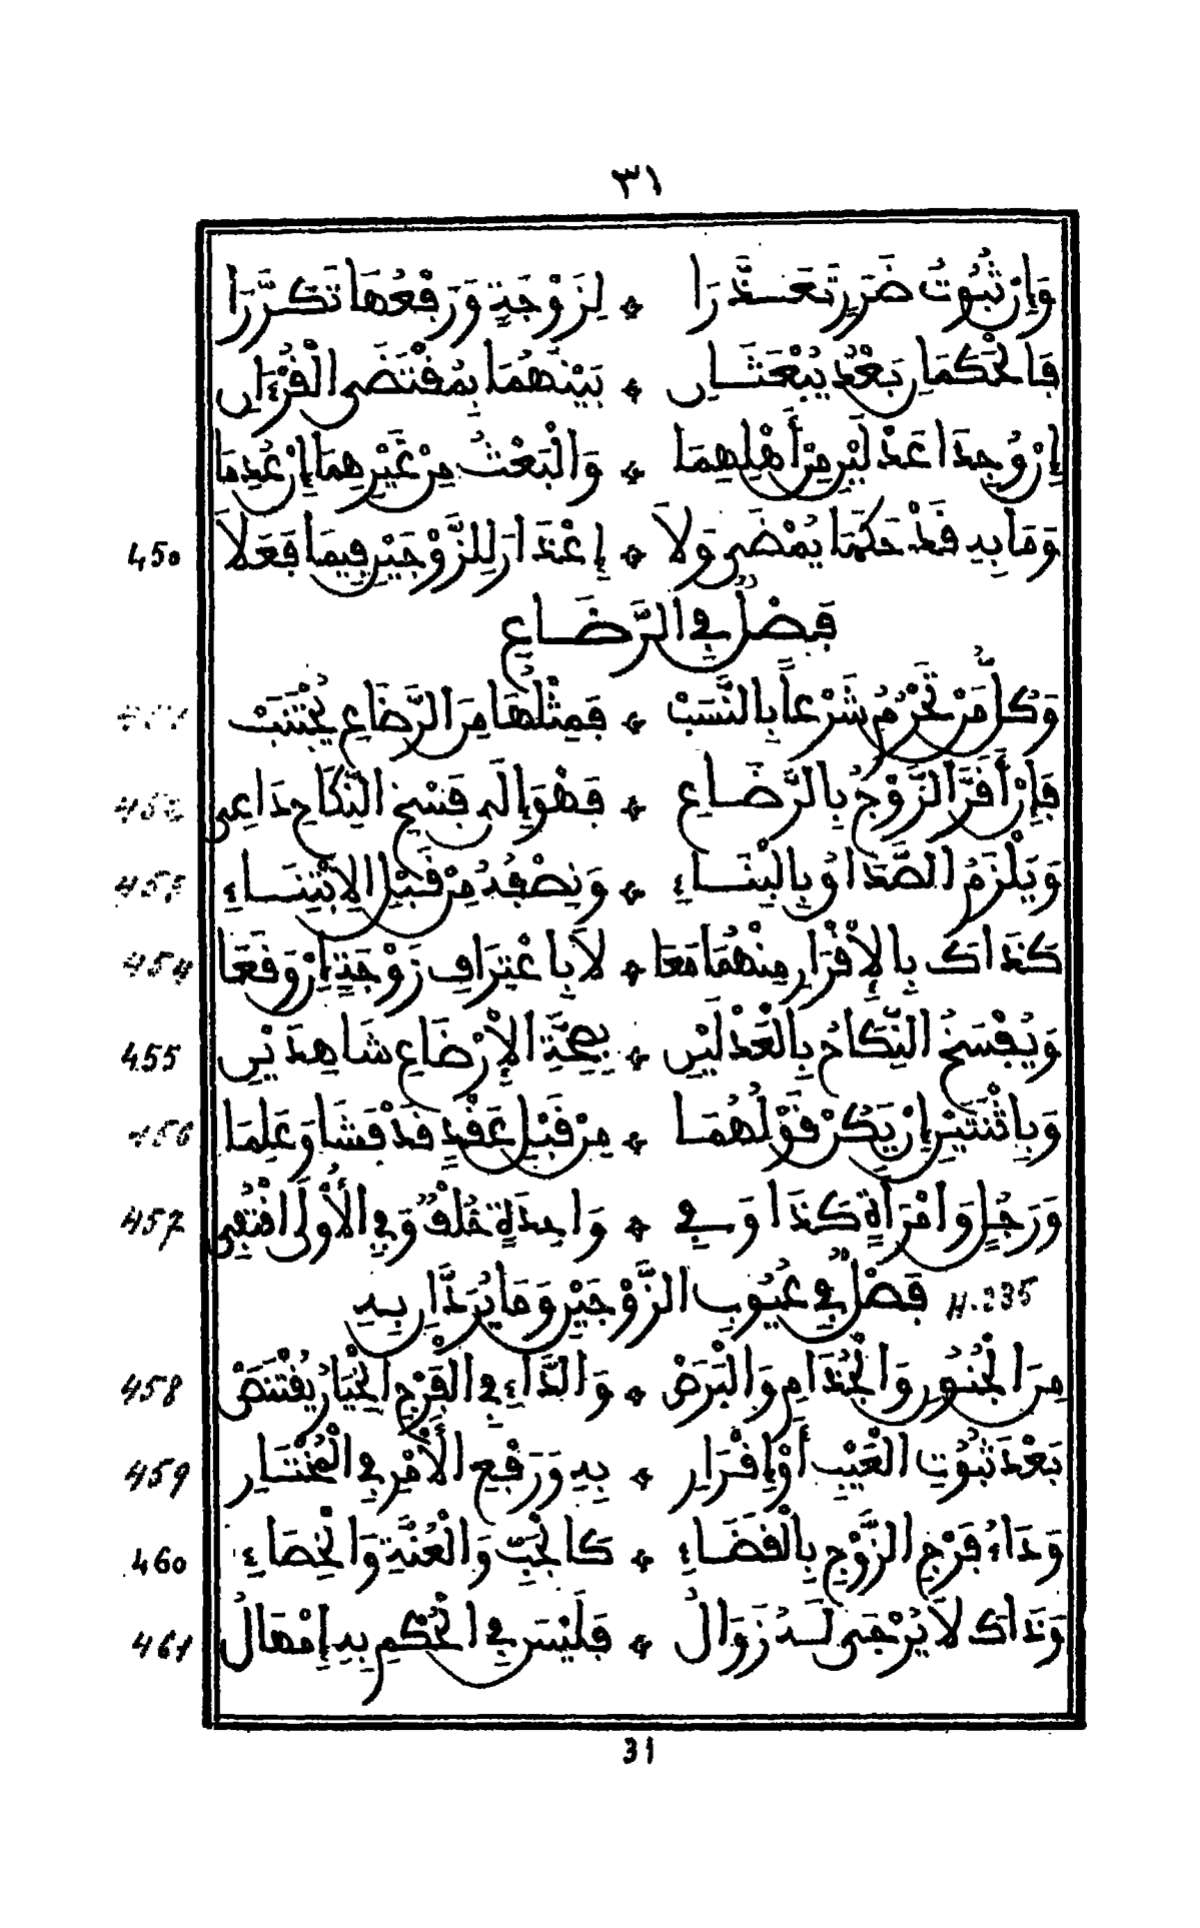 ٣١
وَإِنْ ثُبُوتُ ضَرَرٍ تَعَذَّرَا ۞ لِزَوْجَةٍ وَرَفْعُهَا تَكَرَّرَا
فَالْحَكَمَانِ بَعْدُ يُبْعَثَانِ ۞ بَيْنَهُمَا بِمُقْتَضَى الْقُرْءَانِ
إِنْ وُجِدَا عَدْلَيْنِ مِنْ أَهْلِهِمَا ۞ وَالْبَعْثُ مِنْ غَيْرِهِمَا إِنْ عُدِمَا
450 وَمَا بِهِ قَدْ حَكَمَا يُمْضَى وَلَا ۞ إِعْذَارَ لِلزَّوْجَيْنِ فِيمَا فَعَلَا
فَصْلٌ فِي الرَّضَاعِ
451 وَكُلُّ مَنْ تَحْرُمُ شَرْعاً بِالنَّسَبْ ۞ فَمِثْلُهَا مِنَ الرَّضَاعِ يُجْتَنَبْ
452 فَإِنْ أَقَرَّ الزَّوْجُ بِالرَّضَاعِ ۞ فَهْوَ إِلَى فَسْخِ النِّكَاحِ دَاعِى
453 وَيَلْزَمُ الصَّدَاقُ بِالْبِنَاءِ ۞ وَنِصْفُهُ مِنْ قَبْلِ الِابْتِنَاءِ
454 كَذَاكَ بِالْإِقْرَارِ مِنْهُمَا مَعَا ۞ لَا بِاعْتِرَافِ زَوْجَةٍ إِنْ وَقَعَا
455 وَيُفْسَخُ النِّكَاحُ بِالْعَدْلَيْنِ ۞ بِصِحَّةِ الْإِرْضَاعِ شَاهِدَيْنِ
456 وَبِاثْنَتَيْنِ إِنْ يَكُنْ قَوْلُهُمَا ۞ مِنْ قَبْلِ عَقْدٍ قَدْ فَشَا وَعُلِمَا
457 وَرَجُلٍ وَامْرَأَةٍ كَذَا وَفِي ۞ وَاحِدَةٍ خُلْفٌ وَفِي الْأُولَى اقْتُفِى
فَصْلٌ فِي عُيُوبِ الزَّوْجَيْنِ وَمَا يُرَدَّانِ بِهِ H.235
458 مِنَ الْجُنُونِ وَالْجُذَامِ وَالْبَرَصْ ۞ وَالدَّاءِ فِي الْفَرْجِ الْخِيَارُ يُقْتَنَصْ
459 بَعْدَ ثُبُوتِ الْعَيْبِ أَوْ إِقْرَارِ ۞ بِهِ وَرَفْعِ الْأَمْرِ فِي الْمُخْتَارِ
460 وَدَاءُ فَرْجِ الزَّوْجِ بِالْقَضَاءِ ۞ كَالْجَبِّ وَالْعُنَّةِ وَالْخِصَاءِ
461 وَذَاكَ لَا يُرْجَى لَهُ زَوَالُ ۞ فَلَيْسَ فِي الْحُكْمِ بِهِ إِمْهَالُ
31